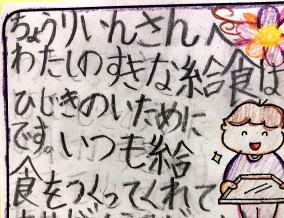 ちょうりいんさんへ
わたしのすきな給食は
ひじきのいために
です。いつも給
食をつくってくれて